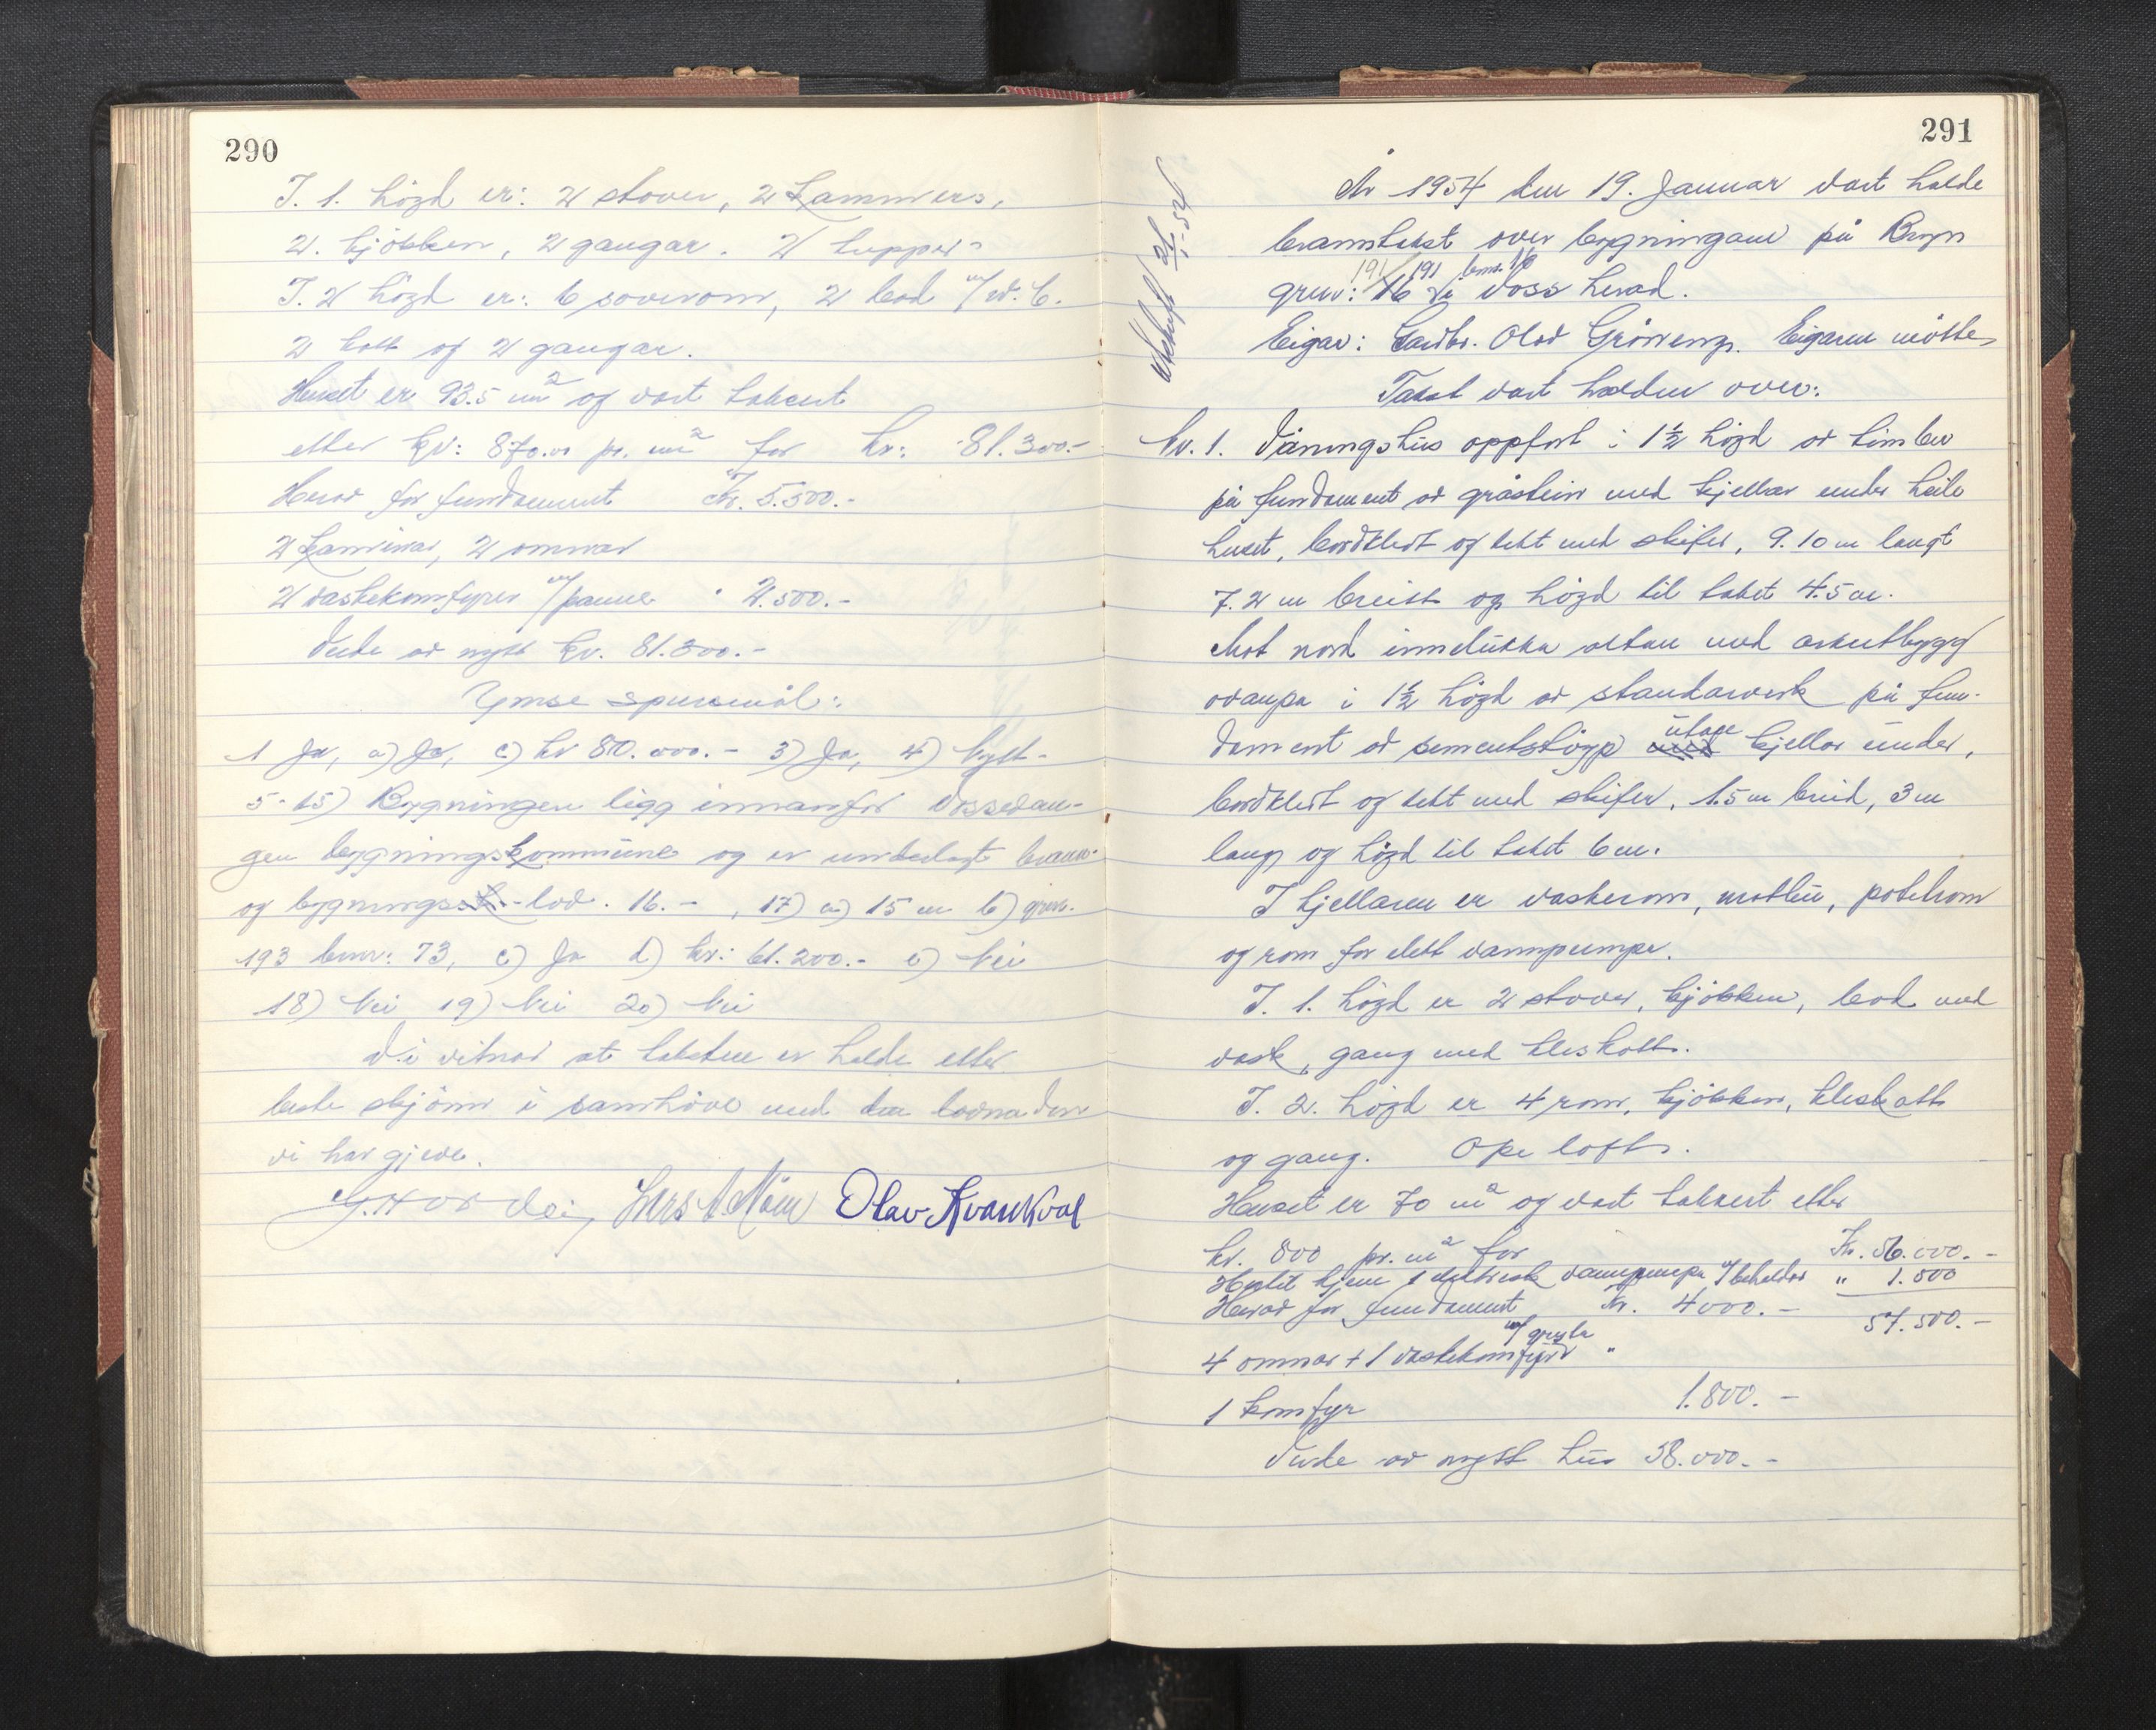 290
I. 1. högd er: 2 stover, 2 kammers,
2. kjökken, 2 gangar. 2 trapper
I. 2 högd er: 6 soverom, 2 bad m/w.c.
2 kott og 2 gangar.
Huset er 93.5 m² og vart taksert
etter kr: 870.00 pr. m² for kr: 81.300.-
Herav for fundament Kr. 5.500.-
2 kaminar, 2 omnar
2 vaskekomfyrer m/panne " 2.500.-
Verde av nytt kr. 81.300.-
Ymse spursmål:
1 Ja, a) Ja, c) kr 80.000.- 3) Ja, 4) bygt-
5-15) Bygningen ligg innanfor Vossevan-
gen bygningskommune og er underlagt brann-
og bygnings -lov. 16.- , 17) a) 15 m b) grnr.
193 bnr: 73, c) Ja d) kr: 61.200.- e) Nei
18) Nei 19) Nei 20) Nei
Vi vitnar at taksten er halde etter
beste skjönn i samhöve med den lovnaden
vi har gjeve.
Lars Olav Kvarekval
291
År 1954 den 19. Januar vart halde
branntakst over bygningane på Ryn
191/ 191 bnr. 16
grnr: 16 i Voss herad.
Eigar: Gardbr. Olav Grövengr. Eigaren mötte
Takst vart halden over:
Nr. 1. Våningshus oppfört i 1½ högd av timber
på fundament av gråstein med kjellar under heile
huset, bordkledt og tekt med skifer, 9.10 m langt
7.2 m breitt og högd til taket 4.5 m.
Mot nord altan med
ovanpå i 1½ högd av standarverk på fun-
utan
dament av sementstöyp med kjellar under,
bordkledt og tekt med skifer, 1.5 m breid, 3 m
lang og högd til taket 6 m.
I kjellaren er vaskerom, matbu, potetrom
og rom for elekt vannpumpe.
I. 1. högd er 2 stover, kjökken, bad med
vask, gang med kleskott.
I. 2. högd er 4 rom, kjökken, kleskott
og gang. Ope loft.
Huset er 70 m² og vart taksert etter
kr. 800 pr. m² for Kr. 56.000.-
Hertil kjem 1 elektrisk vannpumpe m/behaldar " 1.500
Herav for fundament Kr. 4000.- 57.500.-
m/gryta
4 omnar + 1 vaskekomfyr "
1 komfyr 1.800.-
Verde av nytt hus 58.000.-